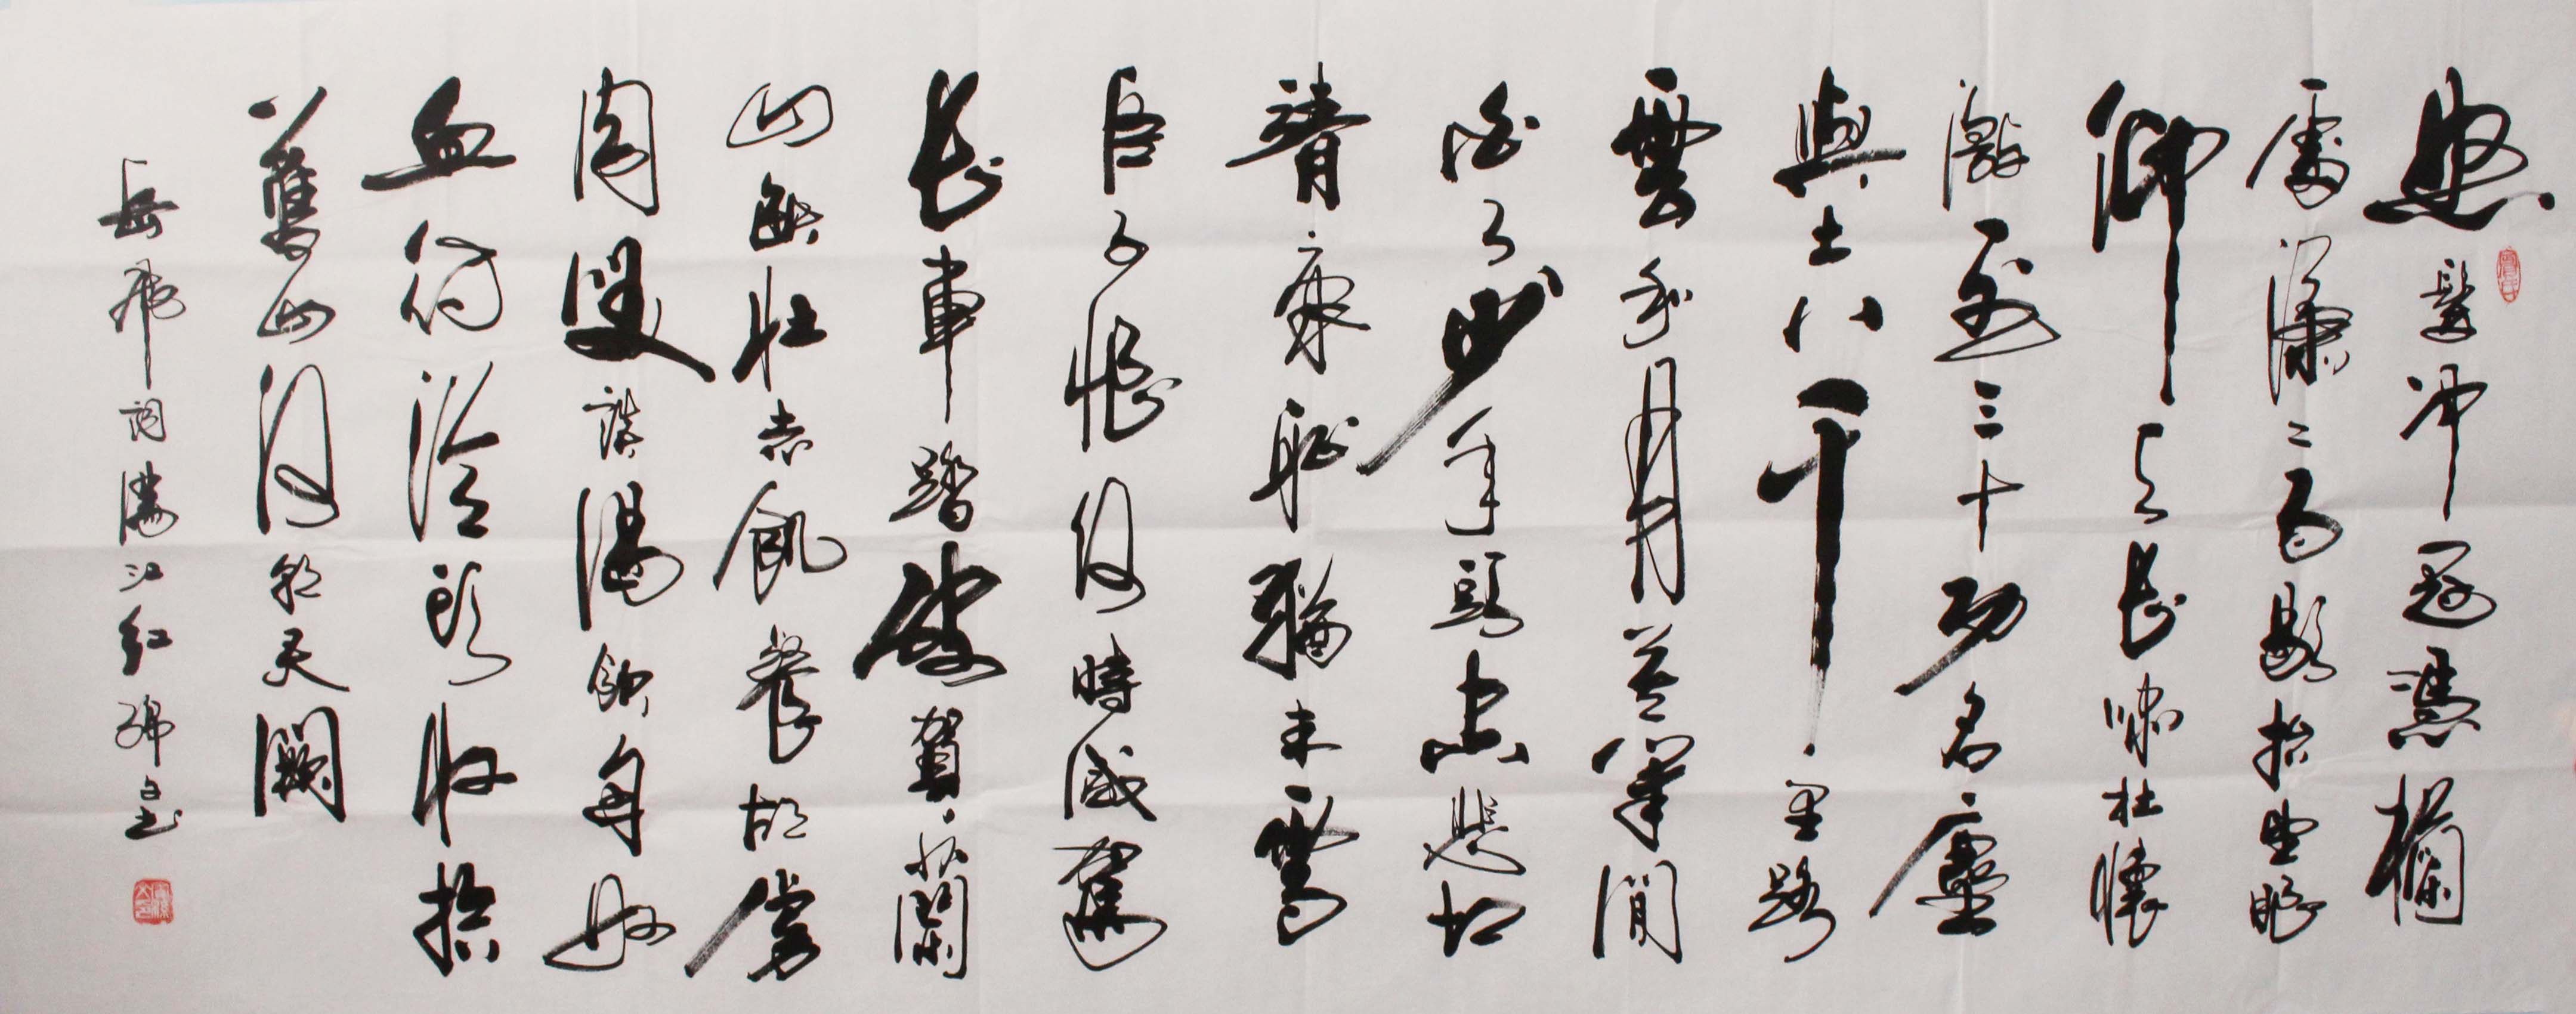 怒髮冲冠憑欄
處瀟二雨歇抬望眼
仰天長嘯壮懷
激烈三十功名塵
與土八千里路
雲和月莫等閒
白了少年頭空悲切
靖康恥猶未雪
臣子恨何時滅駕
長車踏破賀蘭
山缺壯志飢餐胡虜
肉笑談渴飲匈奴
血待從頭收拾
舊山河朝天闕
岳飛詞滿江红